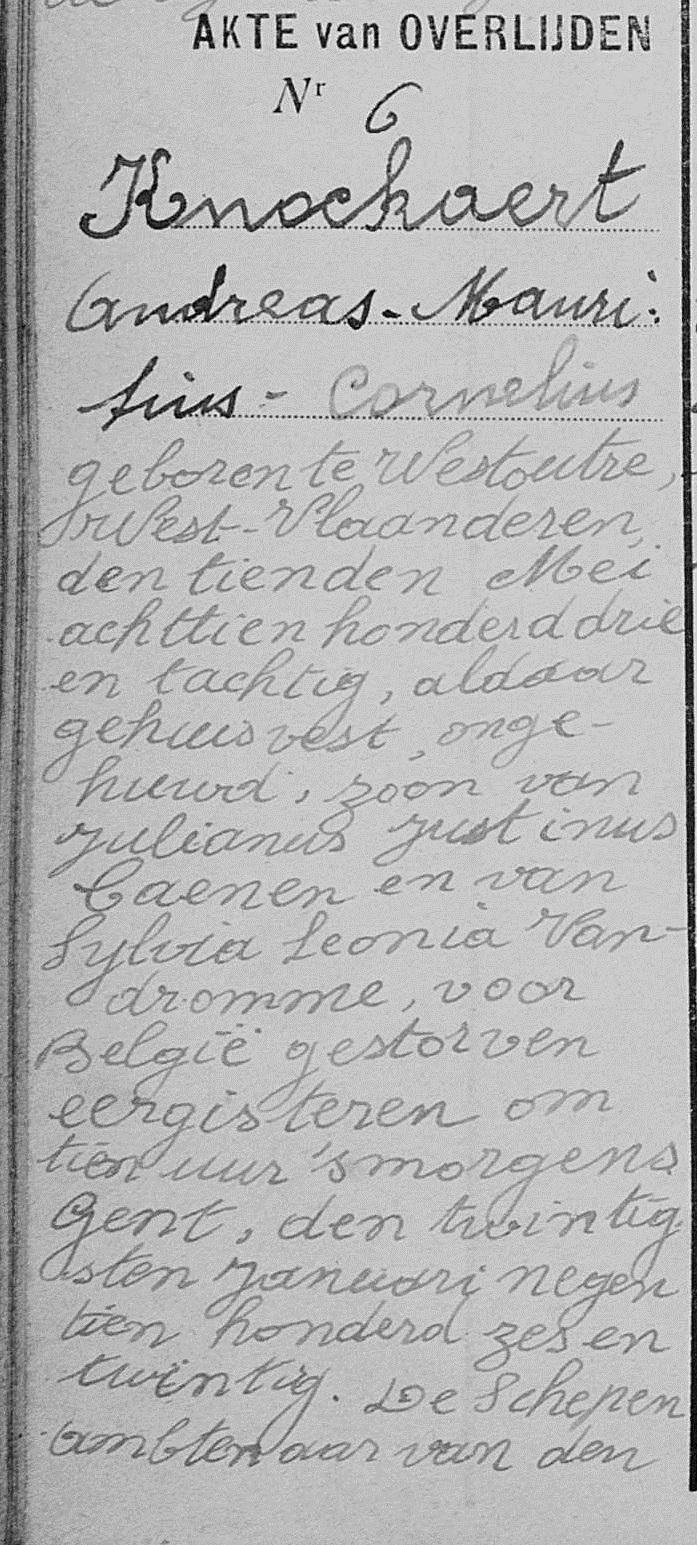 AKTE van OVERLIJDEN
Nr 6
Knockaert
Andreas-Mauri:
tius - Cornelius
geboren te Westoutre,
West-Vlaanderen,
den tienden Mei
achttien honderd drie
en tachtig, aldaar
gehuisvest, onge-
huwd, zoon van
Julianus Justinus
Caenen en van
Sylvia Leonia Van-
dromme, voor
België gestorven
eergisteren om
tien uur 's morgens
Gent, den twintig
sten Januari negen
tien honderd zes en
twintig. De Schepen
ambtenaar van den